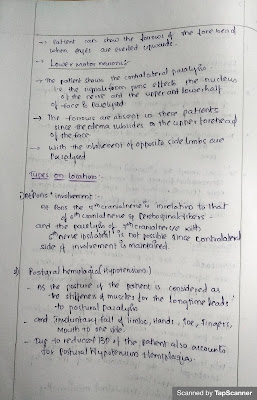 → Patient can show the furrows of the forehead
when eyes are everted upwards.
→ Lower motor neurons:-
→ The patient shows the contralateral paralysis
i.e the ipsilateral pons effects the nucleus
of the nerve and the upper and lower half
of face is Paralysed
→ The furrows are absent in these patients
since the edema subsides the upper forehead
of the face.
→ with the involvement of opposite side limbs are
Paralysed
Types on location:-
1) Pons involvement:-
At Pons the 7th cranial nerve is in relation to that
of 6th cranial nerve & Corticospinal fibers.
and the paralysis of 7th cranial nerve with
6th nerve ipsilateral is not possible since contralateral
side of involvement is maintained.
2) Postural hemiplegia (Hypotension)
- As the posture of the patient is considered as
the stiffness of muscles for the long time leads
to postural paralysis
- and Involuntary fall of limbs, Hands, toe, Fingers,
Mouth to one side.
- Due to reduced BP of the patient also accounts
for postural Hypotension & Hemiplegia.
Scanned by TapScanner